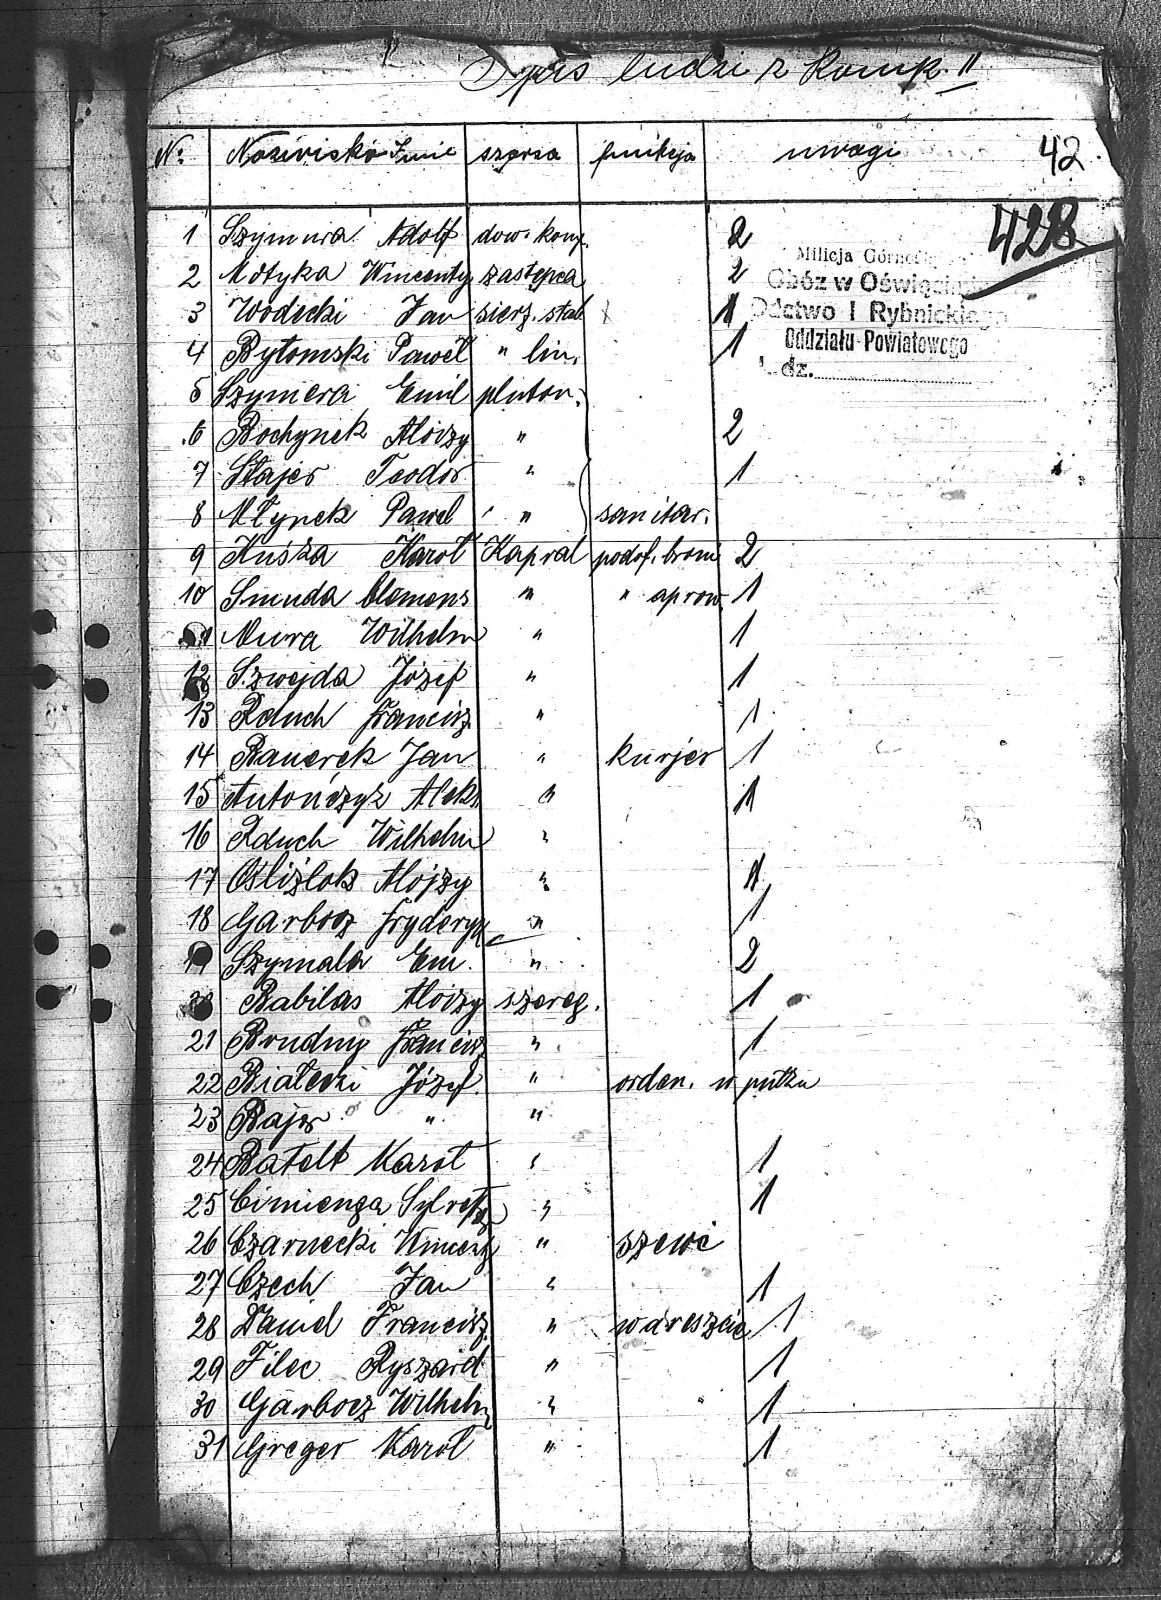 Spis ludzi z Komp. II
No. Nazwisko Imie szarża funkcja uwagi 42
428
Milicja Górnośl
Obóz w Oświęcimiu
Ddctwo I Rybnickiego
Oddziału Powiatowego
L. dz.
1 Szymura Adolf dow. komp. 2
2 Motyka Wincenty zastępca 2
3 Wodecki Jan sierż. stab 1
4 Bytomski Paweł " lin. 1
5 Szymera Emil pluton.
6 Bochynek Aloizy " 2
7 Stajer Teodor " 1
8 Młynek Paweł " sanitar.
9 Kuśka Karol Kapral podof. broni 2
10 Smuda Clemens " " aprow. 1
11 Mura Wilhelm " 1
12 Szwejda Józef " 1
13 Rduch Francisz. " 1
14 Banerek Jan " kurjer 1
15 Antończyk Aleks. " 1
16 Rduch Wilhelm "
17 Oślizlok Alojzy " 1
18 Garbocz Fryderyk " 1
19 Szymala Em. " 2
20 Babilas Aloizy szereg. 1
21 Brudny Francisz " 1
22 Białecki Józef " orden. w pułku
23 Bajer " "
24 Batelt Karol " 1
25 Cimienga Sylwester " 1
26 Czarnecki Wincenty " szewc
27 Czech Jan " 1
28 Daniel Francisz. " w areszcie 1
29 Filec Ryszard " 1
30 Garbocz Wilhelm " 1
31 Greger Karol " 1